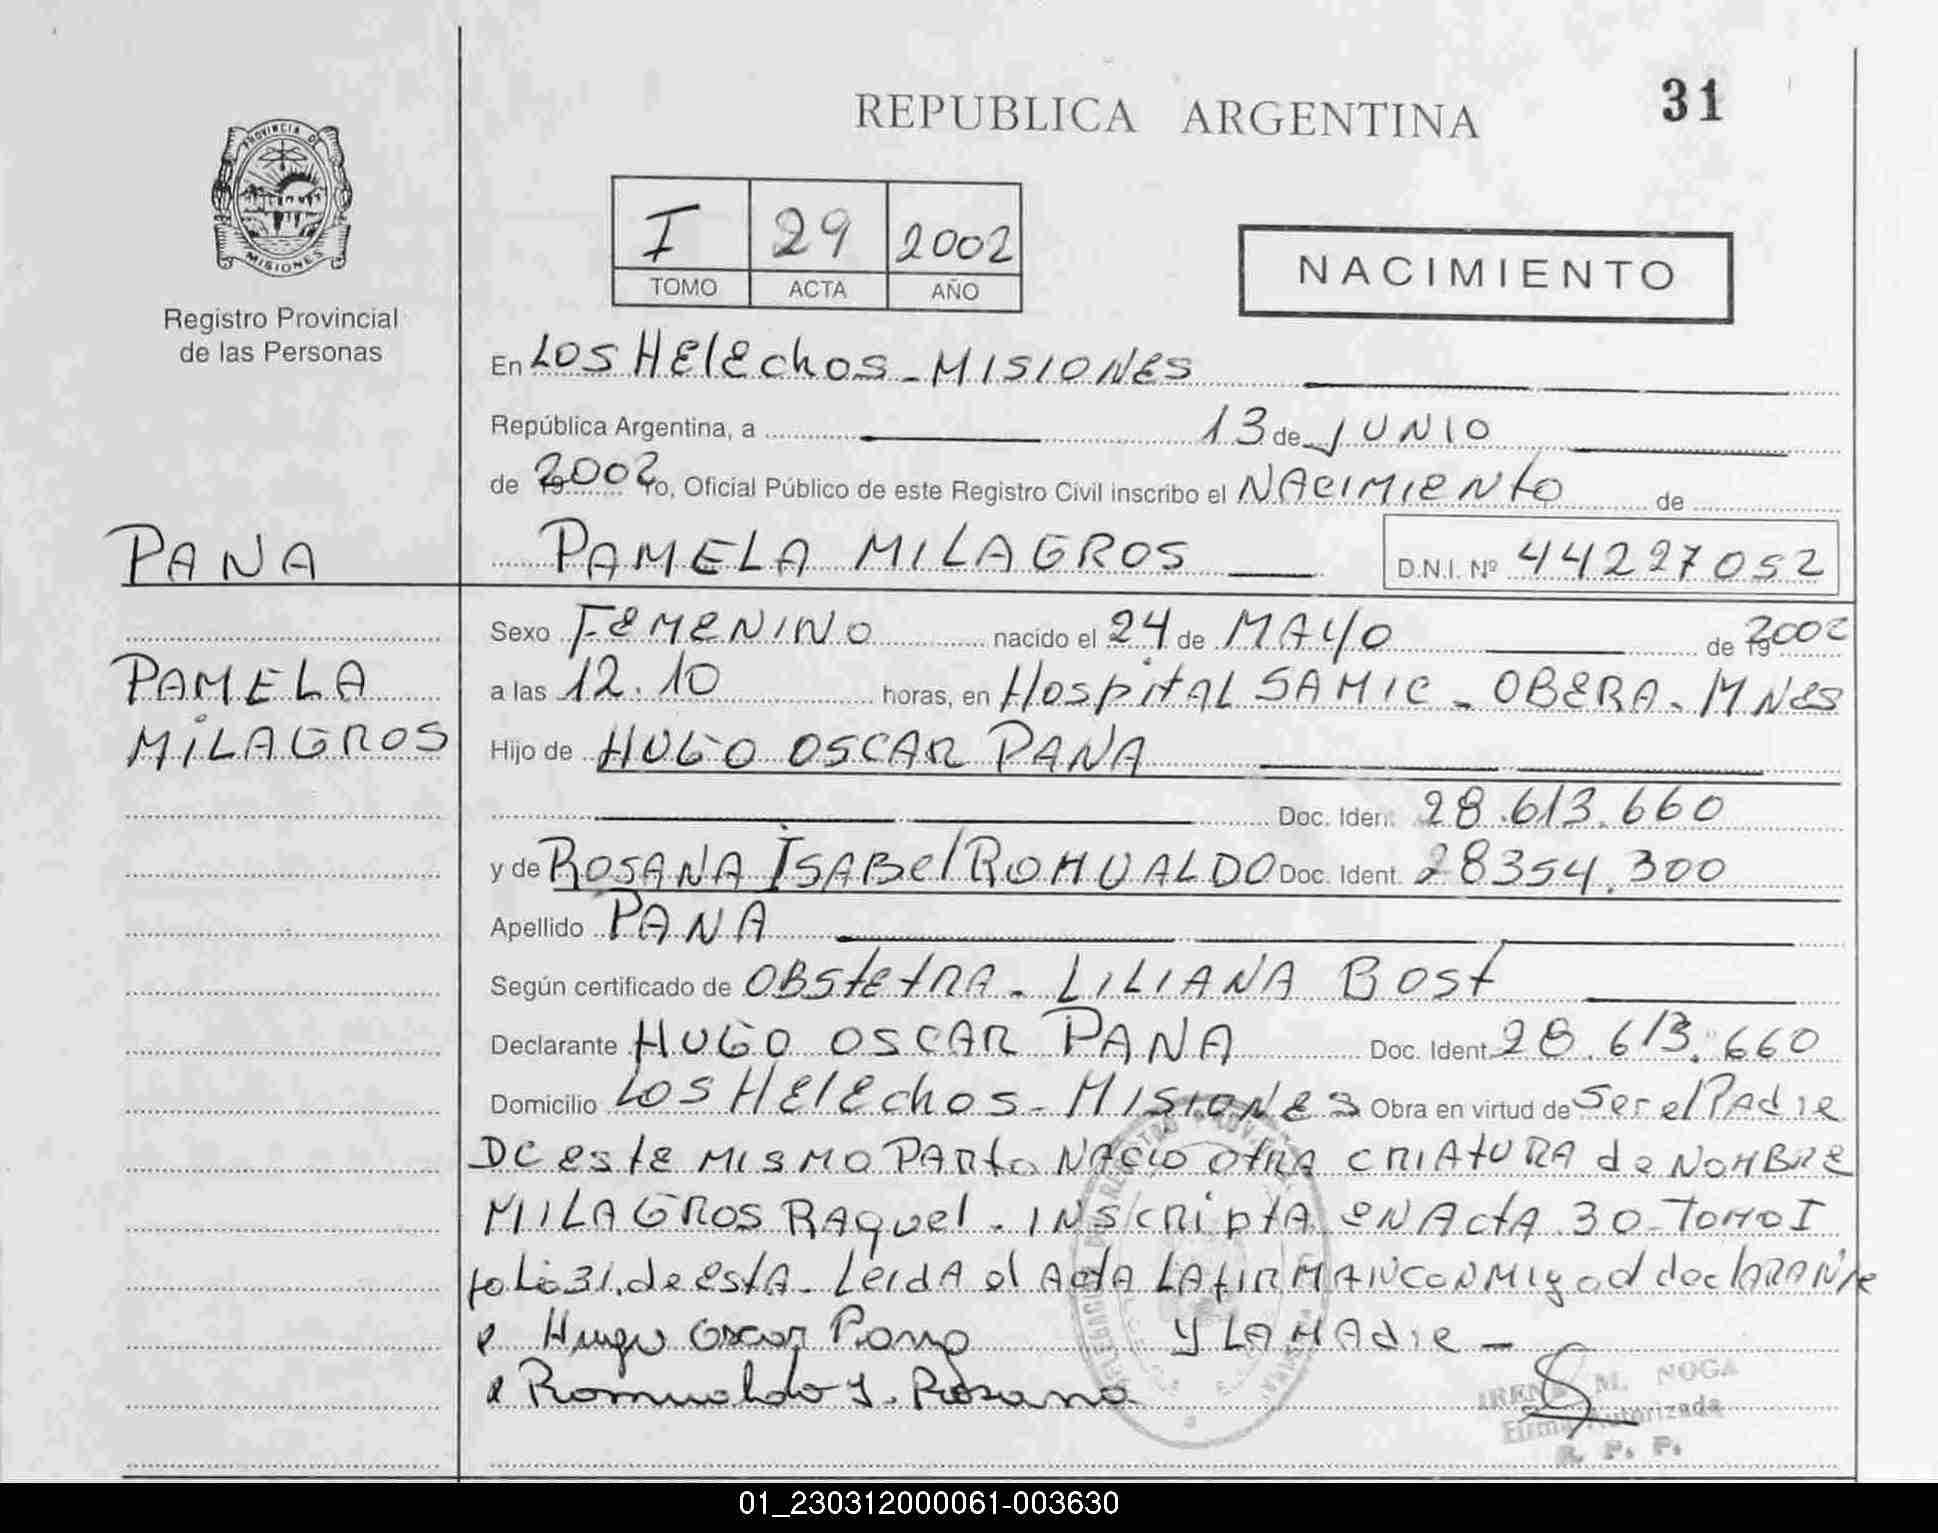 REPUBLICA ARGENTINA
31
PROVINCIA DE
MISIONES
Registro Provincial
de las Personas
I 29 2002
TOMO ACTA AÑO
NACIMIENTO
En LOS HELECHOS - MISIONES
República Argentina, a 13 de JUNIO
de 2002 Yo, Oficial Público de este Registro Civil inscribo el NACIMIENTO de
PANA
PAMELA MILAGROS
D.N.I. Nº 44227052
Sexo FEMENINO nacido el 24 de MAYO de 2002
PAMELA
MILAGROS
a las 12.10 horas, en HOSPITAL SAMIC - OBERA - MNES
Hijo de HUGO OSCAR PANA
Doc. Ident. 28.613.660
y de ROSANA ISABEL ROMUALDO Doc. Ident. 28354.300
Apellido PANA
Según certificado de OBSTETRA - LILIANA BOST
Declarante HUGO OSCAR PANA Doc. Ident. 28.613.660
Domicilio LOS HELECHOS - MISIONES Obra en virtud de Ser el PAdre
DE este MISMO PARto NACIO OtRA CRIAtURA de NOMBRE
MILAGROS RAquel - INSCRiptA eN ActA 30 - TOMO I
foLio 31. de estA - LeidA el ActA LA fiRMAN CONMigo el declARANte
Hugo Oscar Pana y LA MAdre -
Romualdo I. Rosana
IRENE M. NOGA
Firma Autorizada
R. P. P.
01_230312000061-003630